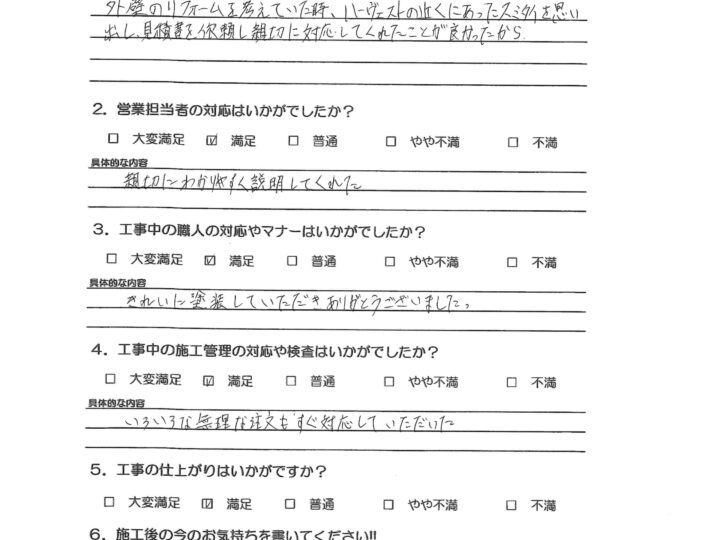 外壁のリフォームを考えていた時、ハーヴェストの近くにあったスミタイを思い
出し、見積書を依頼し親切に対応してくれたことが良かったから。
2. 営業担当者の対応はいかがでしたか？
□ 大変満足 ☑ 満足 □ 普通 □ やや不満 □ 不満
具体的な内容
親切にわかりやすく説明してくれた
3. 工事中の職人の対応やマナーはいかがでしたか？
□ 大変満足 ☑ 満足 □ 普通 □ やや不満 □ 不満
具体的な内容
きれいに塗装していただきありがとうございました。
4. 工事中の施工管理の対応や検査はいかがでしたか？
□ 大変満足 ☑ 満足 □ 普通 □ やや不満 □ 不満
具体的な内容
いろいろな無理な注文もすぐ対応していただいた
5. 工事の仕上がりはいかがですか？
□ 大変満足 ☑ 満足 □ 普通 □ やや不満 □ 不満
6. 施工後の今のお気持ちを書いてください!!